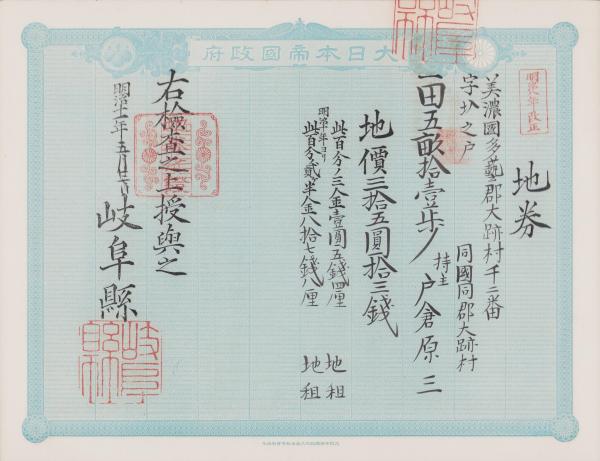 大日本帝國政府
明治九年改正
地券
美濃國多藝郡大跡村千二番
字 之戸
同國同郡大跡村
一田五畝拾壹歩
持主 戸倉原三
地價三拾五圓拾三錢
此百分ノ三金壹圓五錢四厘 地租
明治十年ヨリ
此百分ノ貳半金八拾七錢八厘 地租
右検査之上授與之
明治十一年五月廿 日
岐阜縣
岐阜縣